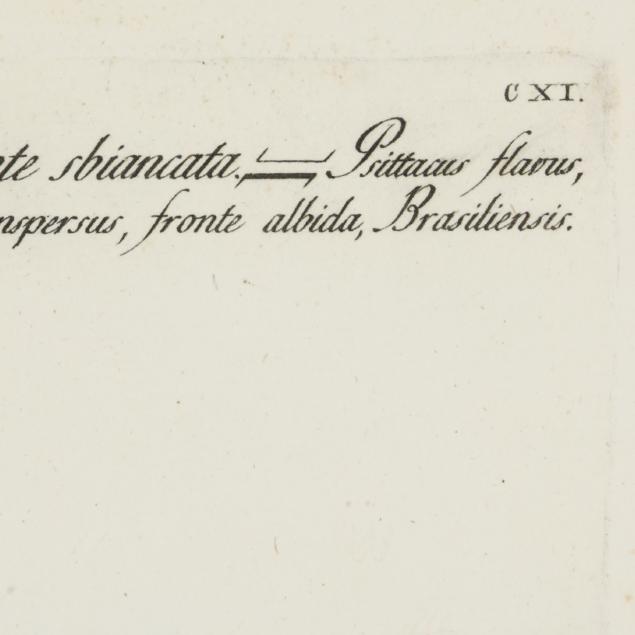 CXI.
te sbiancata. Psittacus flavus,
nspersus, fronte albida, Brasiliensis.